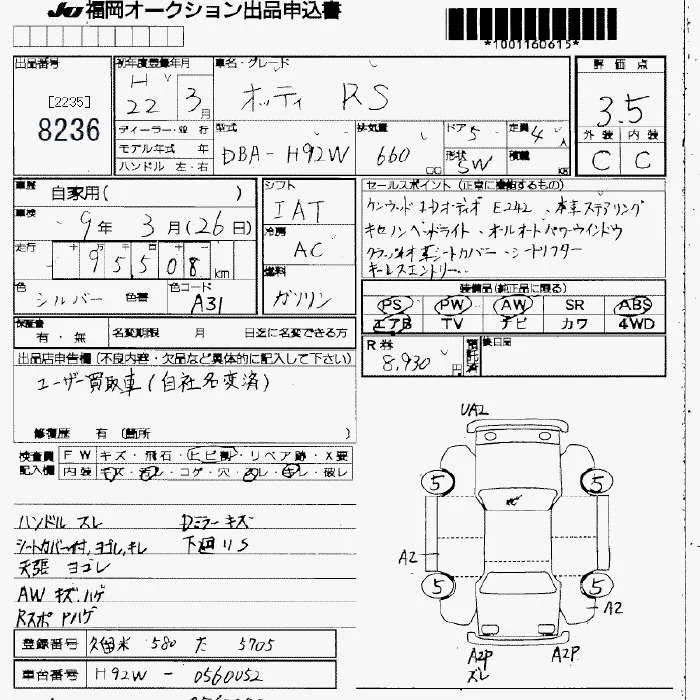 JU 福岡オークション出品申込書
*1001160615*
出品番号
[2235]
8236
初年度登録年月
H
22 3月
車名・グレード
オッティ RS
評価点
3.5
外装 内装
C C
ディーラー・並行
モデル年式 年
ハンドル 左・右
型式
DBA-H92W
排気量
660 cc
ドア 5
形状 SW
定員 4人
積載 kg
車歴 自家用( )
車検 9年 3月(26日)
走行 十 万 千 百 十 一
95508 km
色 シルバー 色替
色コード A31
シフト
IAT
冷房
AC
燃料
ガソリン
セールスポイント (正常に機能するもの)
ケンウッドHDオーディオ E242、本革ステアリング
キセノンヘッドライト・オールオートパワーウインドウ
クラッツィオ革シートカバー・シートリフター
キーレスエントリー・・
装備品(純正品に限る)
PS PW AW SR ABS
エアB TV ナビ カワ 4WD
R券
8,930円
預託済
後日品
保証書 有・無
名変期限 月 日迄に名変できる方
出品店申告欄 (不良内容・欠品など具体的に記入して下さい)
ユーザー買取車(自社名変済)
修復歴 有 (箇所 )
検査員記入欄
FW キズ・飛石・ヒビ割・リペア跡・X要
内装 キズ・汚レ・コゲ・穴・スレ・キレ・破レ
ハンドル スレ Dミラーキズ
シートカバー付、ヨゴレ、キレ 下廻りS
天張 ヨゴレ
AW キズ、ハゲ
Rスポ Pハゲ
UA2
5 5
A2
5 5
A2
A2P A2P
ズレ
登録番号 久留米 580 た 5705
車台番号 H92W - 0560052